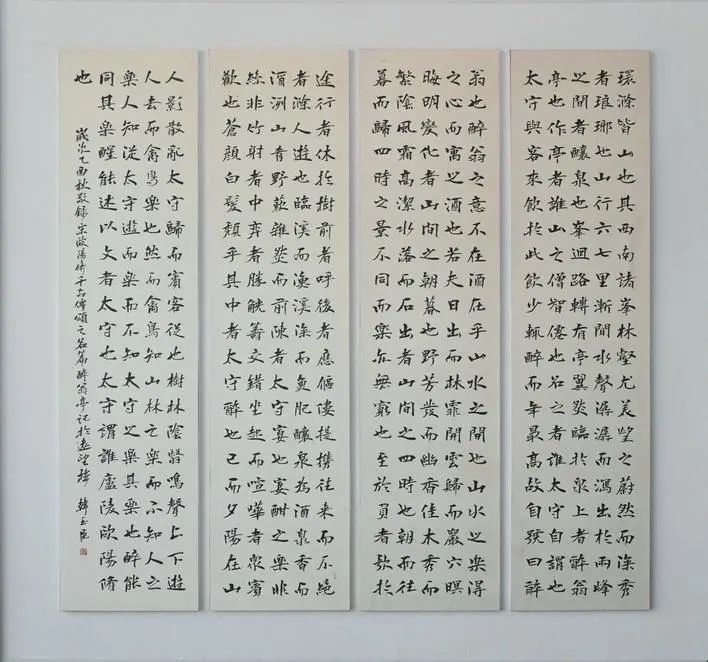 環滁皆山也其西南諸峯林壑尤美望之蔚然而深秀
者琅琊也山行六七里漸聞水聲潺潺而瀉出於兩峰
之間者釀泉也峯迴路轉有亭翼然臨於泉上者醉翁
亭也作亭者誰山之僧智僊也名之者誰太守自謂也
太守與客來飲於此飲少輒醉而年最高故自號曰醉
翁也醉翁之意不在酒在乎山水之間也山水之樂得
之心而寓之酒也若夫日出而林霏開雲歸而巖穴暝
晦明變化者山間之朝暮也野芳發而幽香佳木秀而
繁陰風霜高潔水落而石出者山間之四時也朝而往
暮而歸四時之景不同而樂亦無窮也至於負者歌於
途行者休於樹前者呼後者應傴僂提携往來而不絶
者滁人遊也臨溪而漁溪深而魚肥釀泉為酒泉香而
酒洌山肴野蔌雜然而前陳者太守宴也宴酣之樂非
絲非竹射者中弈者勝觥籌交錯坐起而喧嘩者衆賓
歡也蒼顔白髮頹乎其中者太守醉也已而夕陽在山
人影散亂太守歸而賓客從也樹林陰翳鳴聲上下遊
人去而禽鳥樂也然而禽鳥知山林之樂而不知人之
樂人知從太守遊而樂而不知太守之樂其樂也醉能
同其樂醒能述以文者太守也太守謂誰廬陵歐陽脩
也
歲次乙酉秋敬錄宋歐陽脩千古傳頌之名篇醉翁亭記於遠望樓 韓玉臣